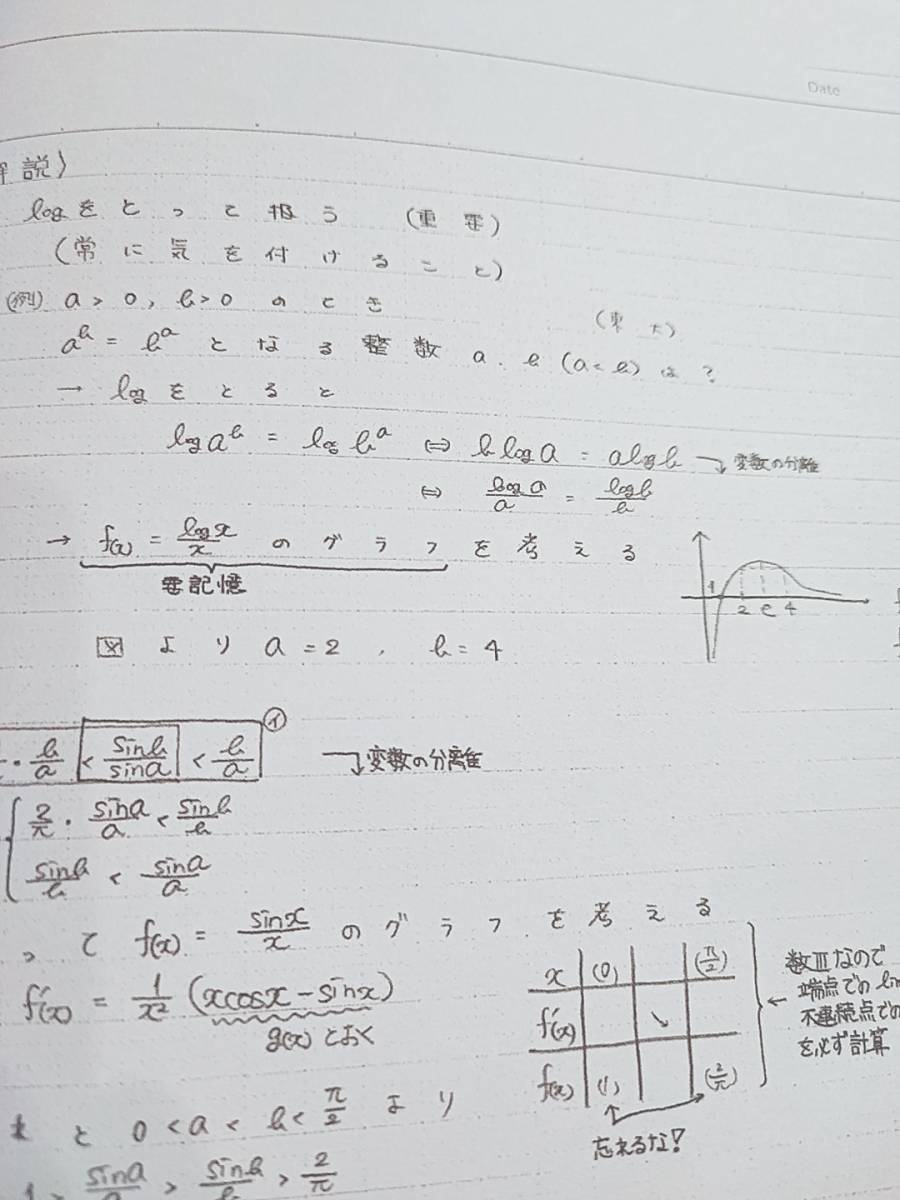 Date
解説〉
logをとって扱う (重要)
(常に気を付けること)
(例) a>0, b>0 のとき
(東大)
a^b = b^a となる整数 a, b (a<b) は?
→ logをとると
log a^b = log b^a ⇔ b log a = a log b → 変数の分離
⇔ log a / a = log b / b
→ f(x) = log x / x のグラフを考える
要記憶
1 2 e 4
図より a=2, b=4
・ b/a < sin b / sin a < b/a ㋑
→ 変数の分離
2/π ・ sin a / a < sin b / b
sin b / b < sin a / a
って f(x) = sin x / x のグラフを考える
f'(x) = 1/x² (x cos x − sin x)
g(x) とおく
x (0) (π/2)
f'(x) ↘
f(x) (1) (2/π)
忘れるな!
← 数Ⅲなので
端点での lim
不連続点での
を必ず計算
と 0 < a < b < π/2 より
1 > sin a / a > sin b / b > 2/π